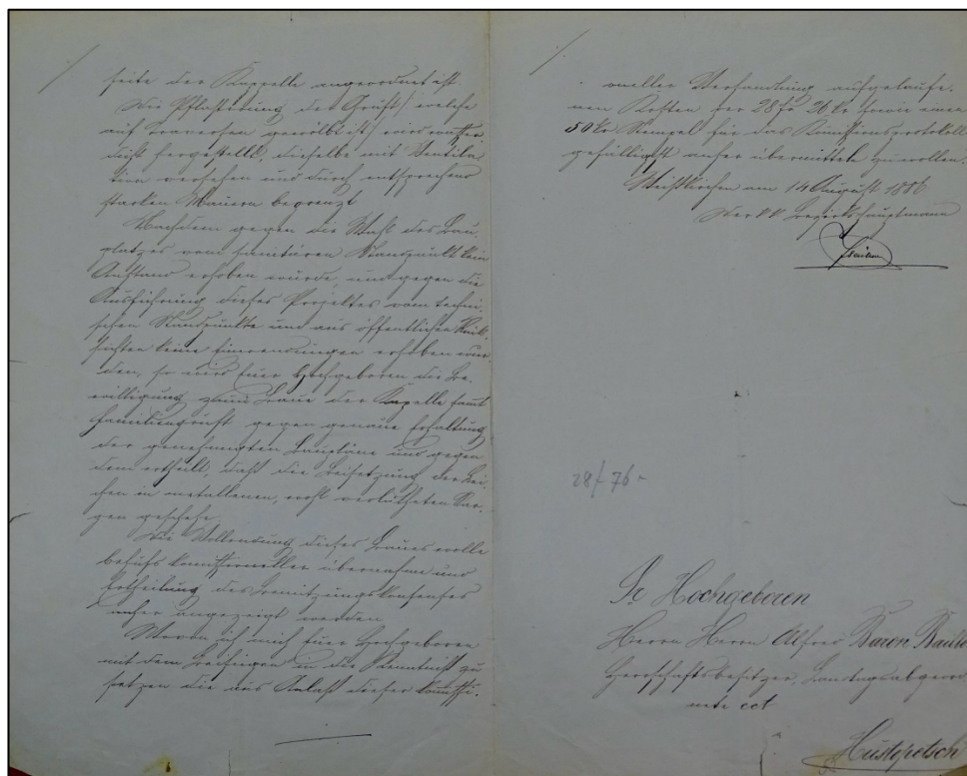 seite der Kapelle angeordnet ist.
Die Pflasterung der Gruft (welche
auf Traversen gewölbt ist) wird wasser¬
dicht hergestellt, dieselbe mit Ventila¬
tion versehen und durch entsprechend
starken Mauern begrenzt
Nachdem gegen die Wahl des Bau
platzes vom sanitären Standpunkt kein
Anstand erhoben wurde, und gegen die
Ausführung dieses Projektes vom techni¬
schen Standpunkte und aus öffentlichen Rück¬
sichten keine Einwendungen erhoben wur¬
den, so wird Euer Hochgeboren die Be¬
willigung zum Baue der Kapelle samt
Familiengruft gegen genaue Erhaltung
der genehmigten Baupläne und gegen
dem ertheilt, daß die Beisetzung der Lei¬
chen in metallenen, wohl verlötheten Sär¬
gen geschehe.
Die Vollendung dieses Baues wolle
behufs komissioneller übernahme und
Ertheilung des Benützungskonsenses
anher angezeigt werden
Wovon ich mich Euer Hochgeboren
mit dem Beifügen in die Kenntniß zu
setzen die aus Anlaß dieser komissi¬
oneller Verhandlung aufgelaufe¬
nen Kosten per 28 fr 26 kr sowie einen
50 kr Stempel für das Komissionsprotokoll
gefälligst anher übermitteln zu wollen.
Weisskirchen am 14 August 1886
Der kk Bezirkshauptmann
28f 76
Sr Hochgeboren
Herrn Herrn Alfred Baron Baillou
Herrschaftsbesitzer, Landtagsabgeord
nete ect
Hustopetsch